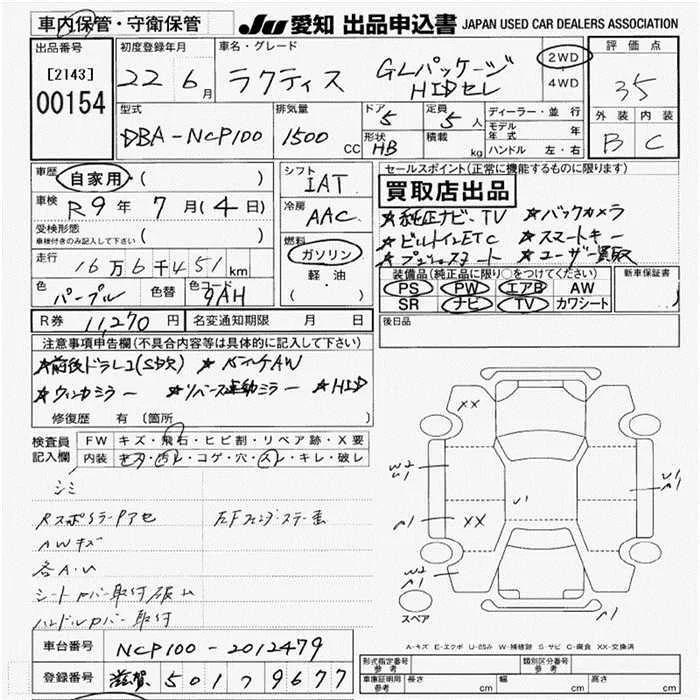 車内保管・守衛保管
JU 愛知 出品申込書 JAPAN USED CAR DEALERS ASSOCIATION
出品番号
[2143]
00154
初度登録年月
22 6月
車名・グレード
ラクティス GLパッケージ
HIDセレ
2WD
4WD
評価点
35
外装 内装
B C
型式
DBA-NCP100
排気量
1500 CC
ドア 5
形状 HB
定員 5人
積載 kg
ディーラー・並行
モデル年式 年
ハンドル 左・右
車歴 自家用 ( )
車検 R9年 7月(4日)
受検形態
車検付きのみ記入して下さい ( )
走行 16万6千451km
色 パープル 色替 色コード 9AH
シフト IAT
冷房 AAC
燃料
ガソリン
軽油
( )
セールスポイント(正常に機能するものに限ります)
買取店出品
★純正ナビ、TV ★バックカメラ
★ビルトインETC ★スマートキー
★プッシュスタート ★ユーザー買取
装備品(純正品に限り○をつけてください)
PS PW エアB AW
SR ナビ TV カワシート
新車保証書
R券 11,270円 名変通知期限 月 日
後日品
注意事項申告欄(不具合内容等は具体的に記入して下さい)
★前後ドラレコ(SD欠) ★ AW
★ウィンカミラー ★リバース連動ミラー ★HID
修復歴 有 〔箇所
検査員記入欄
FW キズ・飛石・ヒビ割・リペア跡・X要
内装 キズ・汚レ・コゲ・穴・スレ・キレ・破レ
シミ
AWキズ
各A・U
ハンドルカバー取付
XX
W2
U1
A1
XX
U1
U1
A1
W2
A1
A1
スペア
A-キズ E-エクボ U-凹み W-補修跡 S-サビ C-腐食 XX-交換済
車台番号 NCP100-2012479
登録番号 滋賀 501 ラ 9677
形式指定番号 参考
類別区分番号 参考
車庫証明用 参考 長さ cm 幅 cm 高さ cm